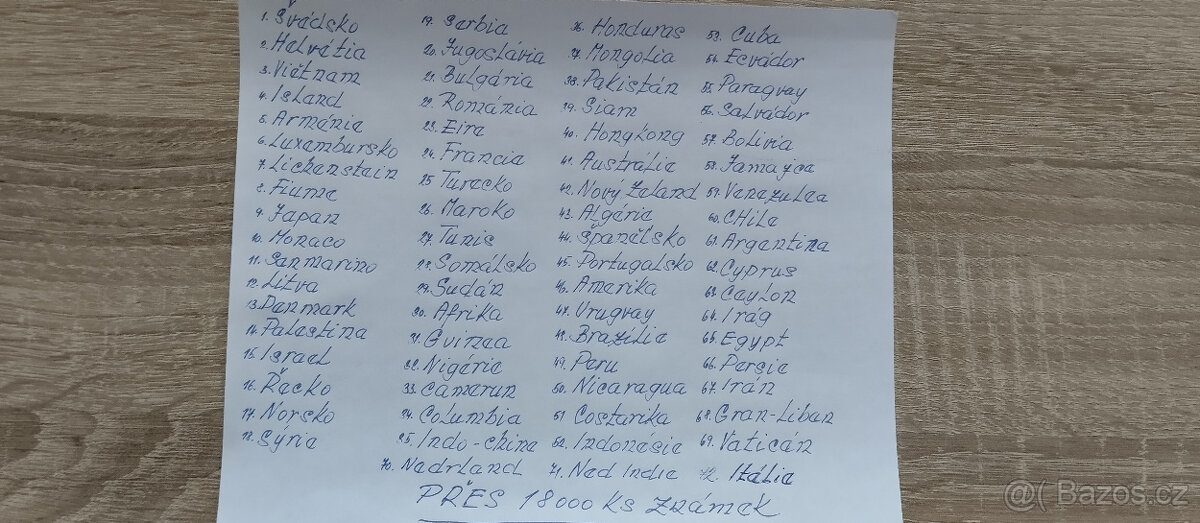 1. Švádsko
2. Helvátia
3. Viětnam
4. Island
5. Armánie
6. Luxambursko
7. Lichenstein
8. Fiume
9. Japan
10. Monaco
11. Sanmarino
12. Litva
13. Denmark
14. Palestina
15. Israel
16. Řecko
17. Norsko
18. Sýrie
19. Serbia
20. Jugoslávia
21. Bulgária
22. Románia
23. Eire
24. Francia
25 Turecko
26. Maroko
27. Tunis
28. Somálsko
29. Sudán
30. Afrika
31. Guinea
32. Nigérie
33. Camerun
34. Columbia
35. Indo-chine
36. Honduras
37. Mongolia
38. Pakistán
39. Siam
40. Hongkong
41. Austrálie
42. Nový Zeland
43. Algérie
44. Španělsko
45. Portugalsko
46. Amerika
47. Vruguay
48. Brazílie
49. Peru
50. Nicaragua
51 Costarika
52. Indonésie
53. Cuba
54. Ecvádor
55. Paraguay
56. Salvádor
57. Bolivia
58. Jamajca
59. Venezulea
60. CHile
61. Argentina
62. Cyprus
63. Ceylon
64. Irág
65. Egypt
66. Persie
67. Irán
68. Gran-Liban
69. Vaticán
70. Nedrland
71. Ned Indie
72. Itálie
PŘES 18000 ks známek
@( Bazos.cz